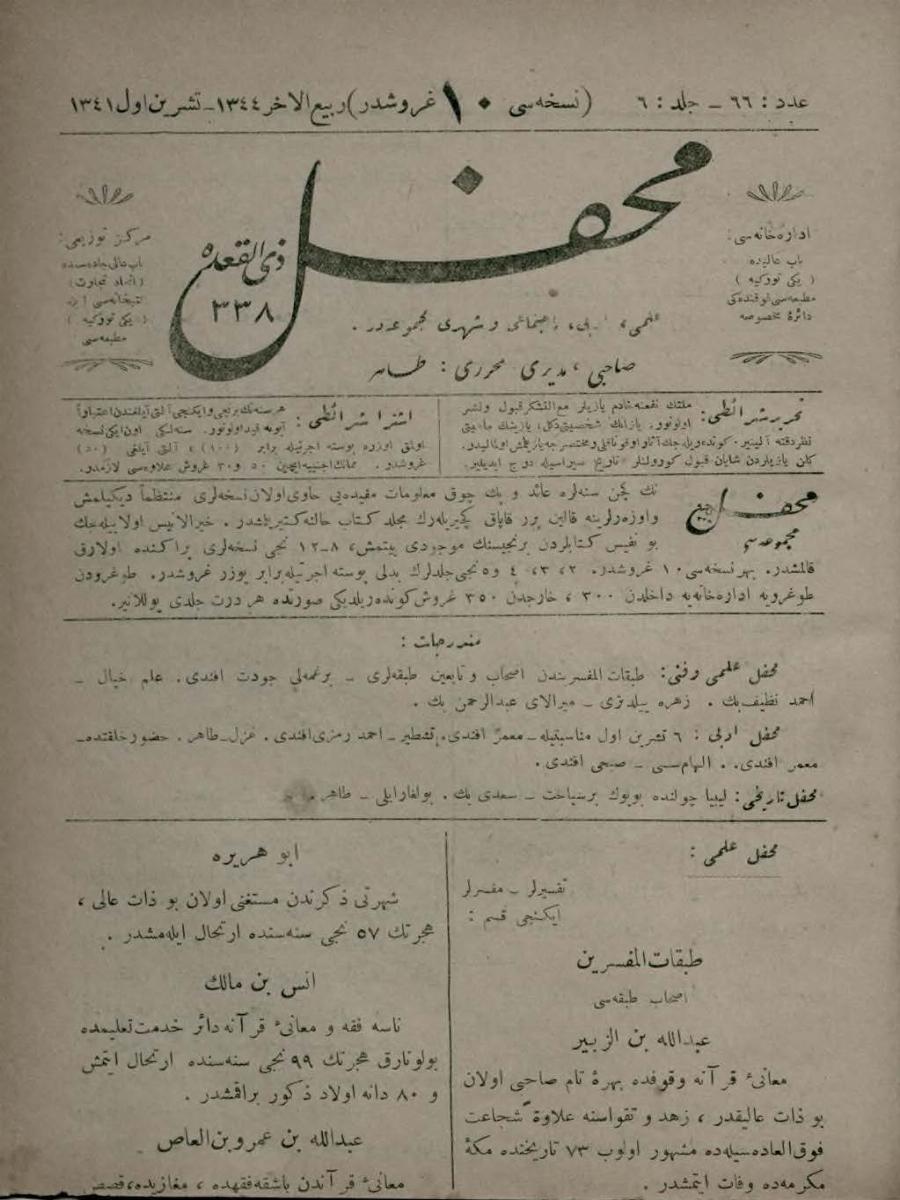 عدد : ٦٦ – جلد : ٦ (نسخه‌سی ١٠ غروشدر) ربیع الاخر ١٣٤٤ – تشرین اول ١٣٤١
محفل
ذی القعده
٣٣٨
اداره‌خانه‌سی :
باب عالیده
( یکی تورکیه )
مطبعه‌سی فوقنده‌کی
دائرهٔ مخصوصه
مرکز توزیعی :
باب عالی جاده‌سنده
( اتحاد تجارت )
کتبخانه‌سی
( یکی تورکیه )
مطبعه‌سی
علمی، ادبی، اجتماعی و شهری مجموعه‌در .
صاحبی ، مدیری محرری : طاهر
تحریر شرائطی : ملتك نفعنه خادم یازیلر مع التشکر قبول ونشر
اولونور. یازانك شخصیتی دکل، یازینك ماهیتی
نظر دقته آلینیر. کوندریله‌جك آثار اوقوناقلی ومختصرجه یازیلمش اولمالیدر.
کلن یازیلردن شایان قبول کورولنلر تاریخ سیراسیله درج ایدیلیر.
اشترا شرائطی : هر سنه‌نك برنجی وایکنجی آلتی آیلغندن اعتباراً
آبونه قید اولونور. سنه‌لکی اون ایکی نسخه
اولمق اوزره پوسته اجرتیله برابر (١٠٠)، آلتی آیلغی (٥٠)
غروشدر . ممالك اجنبیه ایچین ٥٠ و ٣٠ غروش علاوه‌سی لازمدر.
محفل
مجموعه‌سی
نك کچن سنه‌لره عائد و پك چوق معلومات مفیده‌یی حاوی اولان نسخه‌لری منتظماً دیکیلمش
و اوزه‌رلرینه قالین برر قاپاق کچیریله‌رك مجلد کتاب حالنه کتیریلمشدر . خیر الانیس اولابیله‌جك
بو نفیس کتابلردن برنجیسنك موجودی بیتمش، ٨–١٢ نجی نسخه‌لری پراکنده اولارق
قالمشدر. بهر نسخه‌سی ١٠ غروشدر. ٢، ٣، ٤ و ٥ نجی جلدلرك بدلی پوسته اجرتیله برابر یوزر غروشدر. طوغرودن
طوغرویه اداره‌خانه‌یه داخلدن ٣٠٠ ، خارجدن ٣٥٠ غروش کوندریلدیکی صورتده هر درت جلدی یوللانیر.
مندرجات :
محفل علمی وفنی : طبقات المفسریندن اصحاب و تابعین طبقه‌لری – برغمه‌لی جودت افندی . علم خیال –
احمد نظیف بك . زهره ییلدیزی – میرالای عبدالرحمن بك .
محفل ادبی : ٦ تشرین اول مناسبتیله – معمر افندی. قشطیر – احمد رمزی افندی. غزل – طاهر . حضور خلقتده –
معمر افندی. الهام‌سی – صبحی افندی .
محفل تاریخی : لیبیا چولنده بویوك بر سیاحت – سعدی بك . بولغارایلی – طاهر .
محفل علمی :
تفسیرلر – مفسرلر
ایکنجی قسم :
طبقات المفسرین
اصحاب طبقه‌سی
عبدالله بن الزبیر
معانیٔ قرآنه وقوفده بهرهٔ تام صاحبی اولان
بو ذات عالیقدر ، زهد و تقواسنه علاوةً شجاعت
فوق العاده‌سیله‌ده مشهور اولوب ٧٣ تاریخنده مکهٔ
مکرمه‌ده وفات ایتمشدر .
ابو هریره
شهرتی ذکرندن مستغنی اولان بو ذات عالی ،
هجرتك ٥٧ نجی سنه‌سنده ارتحال ایله‌مشدر .
انس بن مالك
ناسه فقه و معانیٔ قرآنه دائر خدمت تعلیمده
بولونارق هجرتك ٩٩ نجی سنه‌سنده ارتحال ایتمش
و ٨٠ دانه اولاد ذکور براقمشدر .
عبدالله بن عمرو بن العاص
معانیٔ قرآندن باشقه فقهده ، مغازیده، قصص